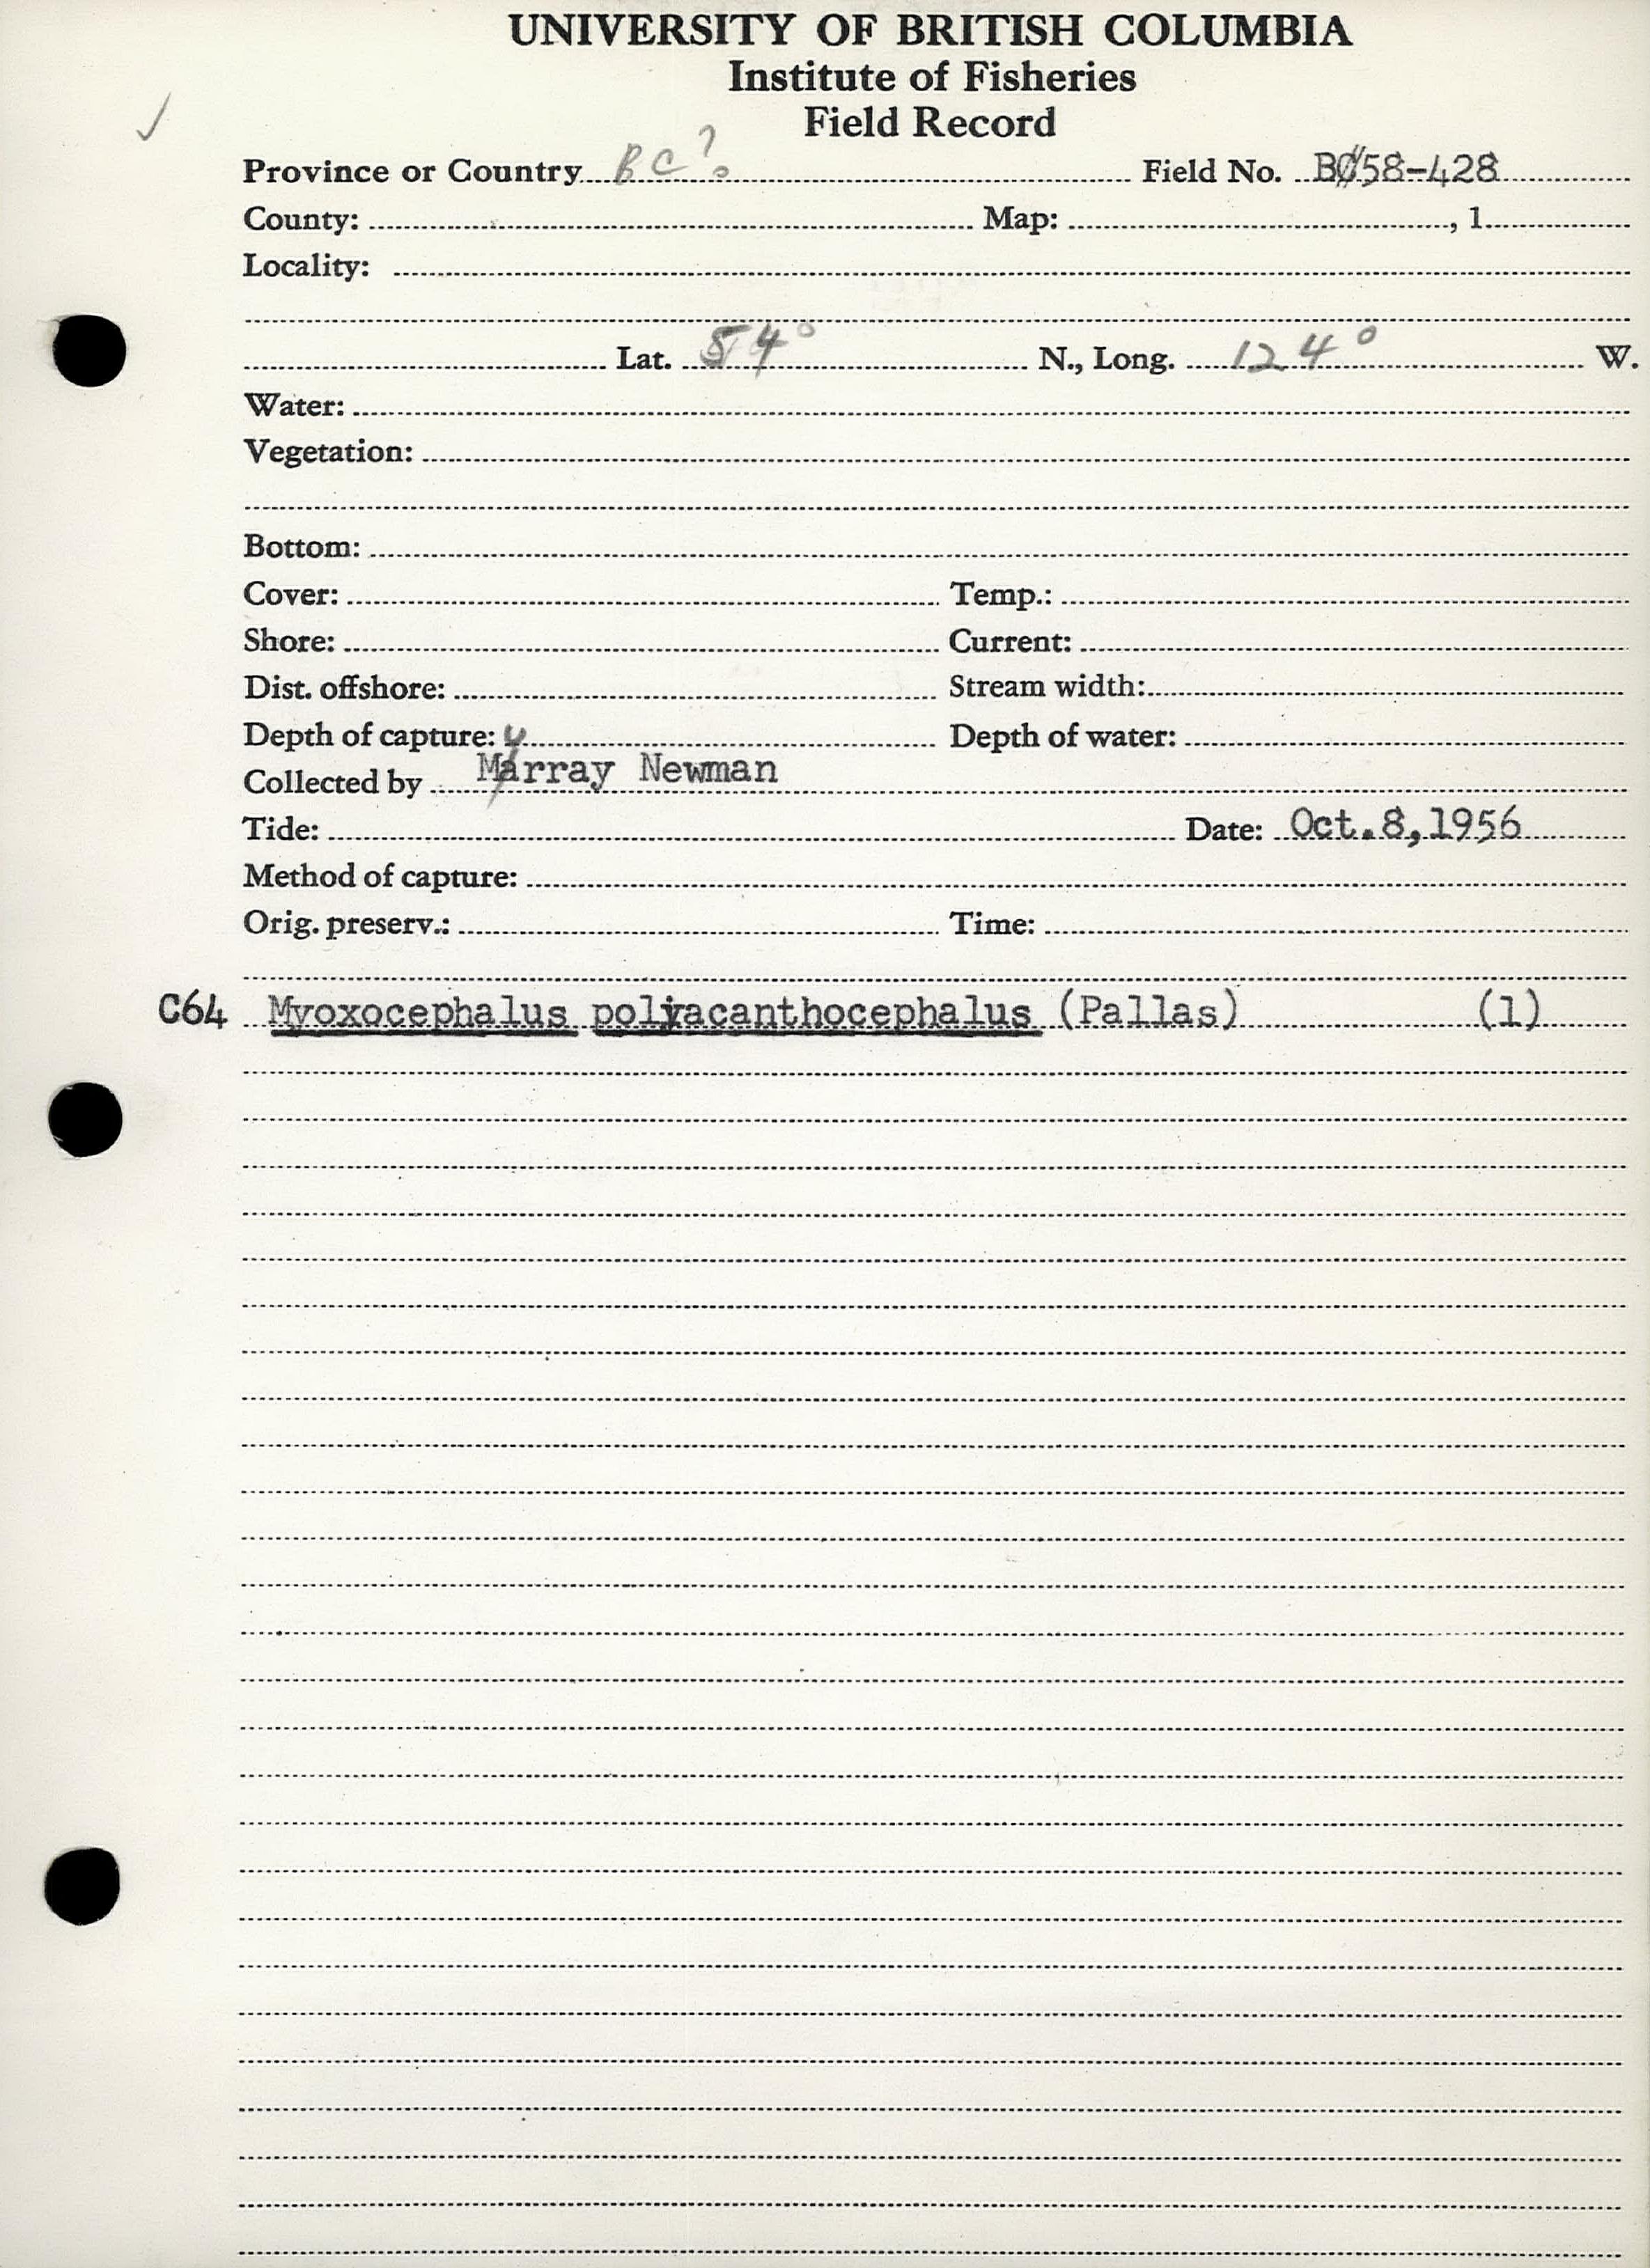 UNIVERSITY OF BRITISH COLUMBIA
Institute of Fisheries
Field Record
✓
Province or Country BC? Field No. BC58-428
County: Map: , 1
Locality:
Lat. 54° N., Long. 124° W.
Water:
Vegetation:
Bottom:
Cover: Temp.:
Shore: Current:
Dist. offshore: Stream width:
Depth of capture: Depth of water:
u
Collected by Marray Newman
Tide: Date: Oct.8,1956
Method of capture:
Orig. preserv.: Time:
C64 Myoxocephalus polyacanthocephalus (Pallas) (1)